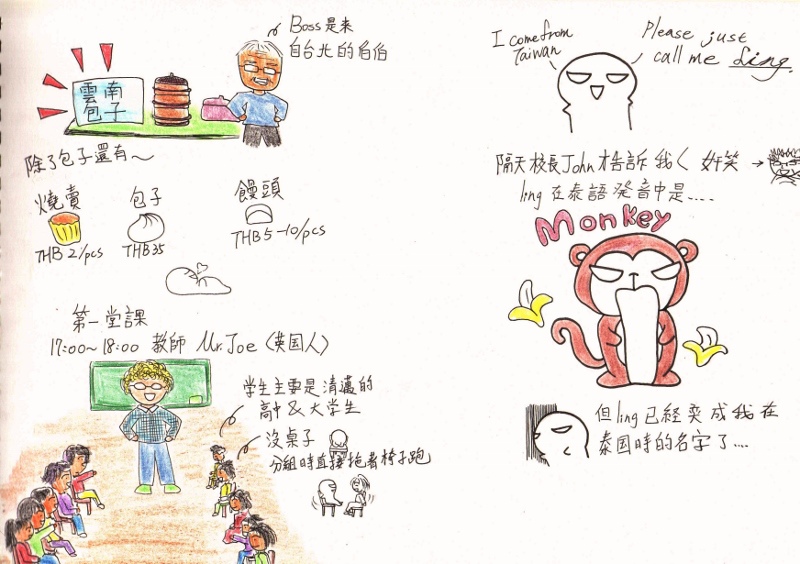 Boss是來
自台北的伯伯
雲南
包子
除了包子還有～
燒賣
THB 2/pcs
包子
THB35
饅頭
THB5-10/pcs
第一堂課
17:00~18:00 教師 Mr. Joe〈英国人〉
学生主要是清邁的
高中&大学生
沒桌子
分組時直接拖著椅子跑
I come from
Taiwan
Please just
call me Ling.
隔天校長John才告訴我く 奸笑
ling 在泰語発音中是....
Monkey
但ling已経変成我在
泰国時的名字了....